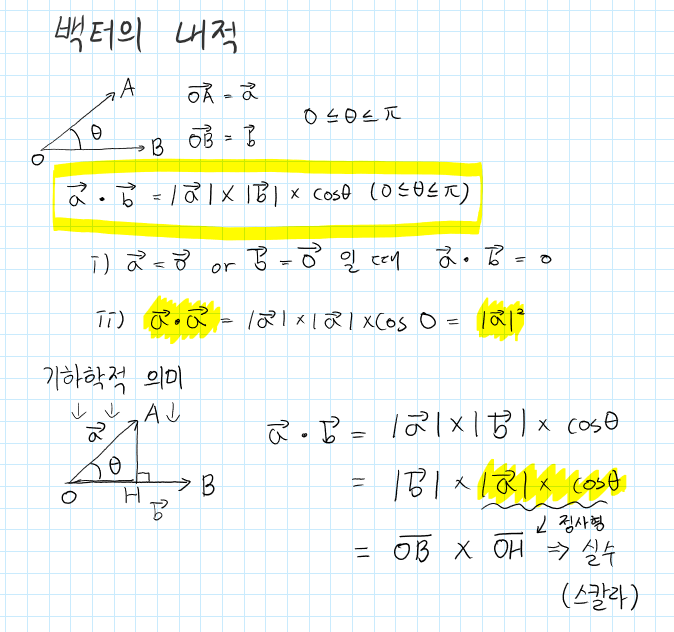 벡터의 내적
A
θ
O
B
$\overrightarrow{OA} = \vec{a}$
$\overrightarrow{OB} = \vec{b}$
$0 \le \theta \le \pi$
$\vec{a} \cdot \vec{b} = |\vec{a}| \times |\vec{b}| \times \cos\theta \ (0 \le \theta \le \pi)$
i) $\vec{a} = \vec{0}$ or $\vec{b} = \vec{0}$ 일 때 $\vec{a} \cdot \vec{b} = 0$
ii) $\vec{a} \cdot \vec{a} = |\vec{a}| \times |\vec{a}| \times \cos 0 = |\vec{a}|^2$
기하학적 의미
↓ ↓ A ↓
$\vec{a}$
θ
O
H
B
$\vec{b}$
$\vec{a} \cdot \vec{b} = |\vec{a}| \times |\vec{b}| \times \cos\theta$
$= |\vec{b}| \times |\vec{a}| \times \cos\theta$
↙ 정사형
$= \overline{OB} \times \overline{OH}$ ⇒ 실수
(스칼라)